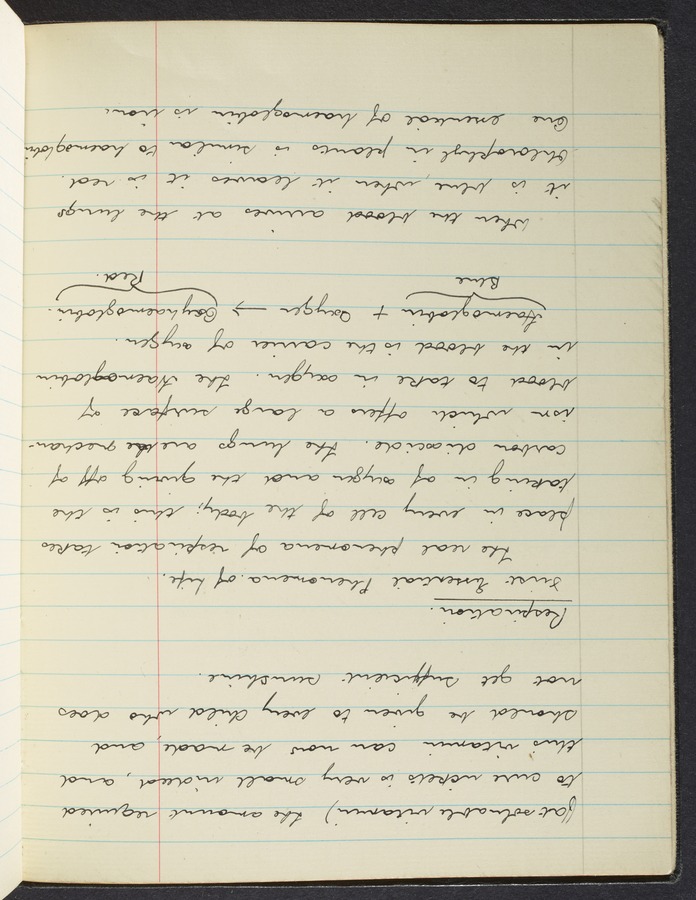 (fat soluable vitamin) the amount required
to cure rickets is very small indeed, and
this vitamin can now be made, and
should be given to every child who does
not get sufficient sunshine.
Respiration.
First Essential Phenomena of life.
The real phenomena of respiration takes
place in every cell of the body; this is the
taking in of oxygen and the giving off of
carbon dioxide. The lungs are the mechan-
ism which offers a large surface of
blood to take in oxygen. The Haemoglobin
in the blood is the carrier of oxygen.
Haemoglobin + Oxygen → Oxyhaemoglobin.
Blue Red.
When the blood arrives at the lungs
it is blue, when it leaves it is red.
Chlorophyl in plants is similar to haemoglobin
One essential of haemoglobin is iron.